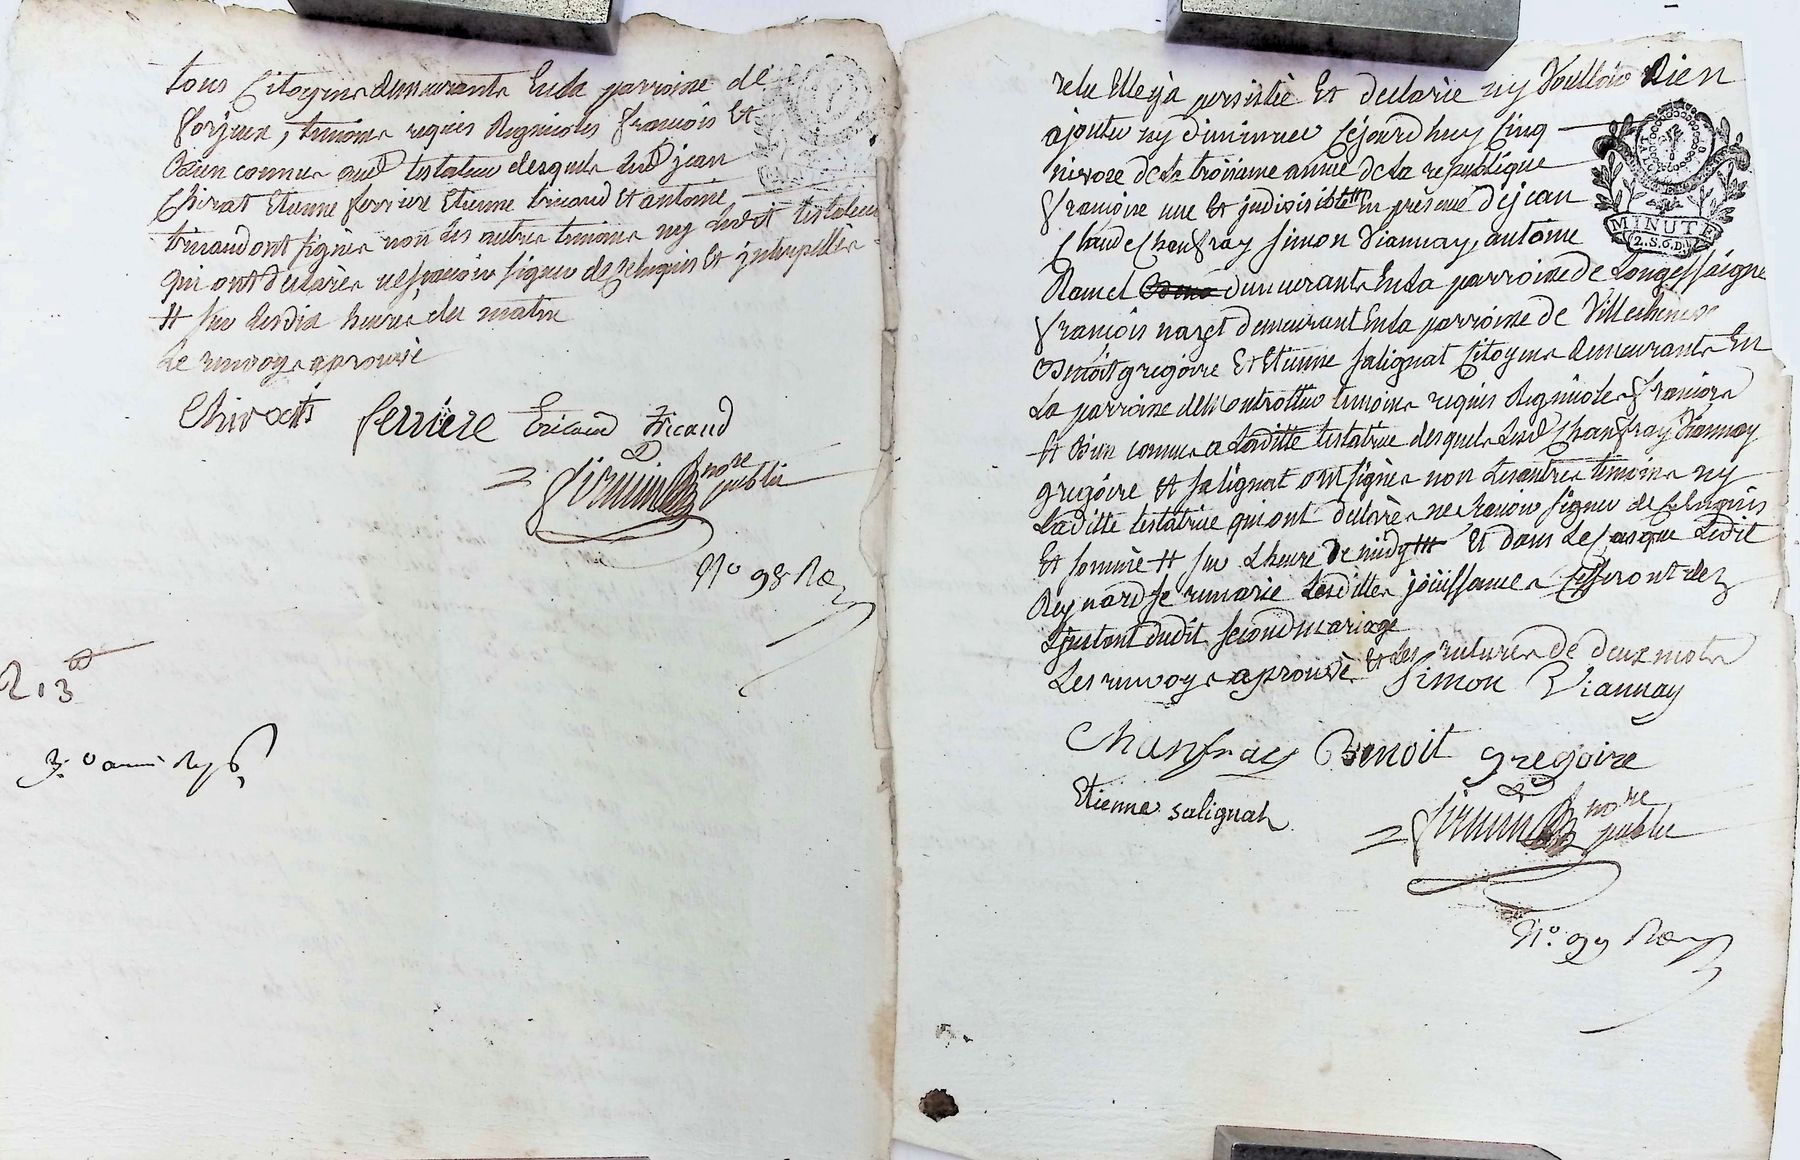 tous Citoyens demeurants En la parroisse de
forjeux, temoins requis Regnicoles françois Et
Bien connus dud testateur desquels lesd jean
Chirat Etienne ferriere Etienne tricaud Et antoine
tricaud ont signés non les autres temoins ny ledit testateur
qui ont declarés ne sçavoir signer de ce enquis Et interpellés
# sur les dix heures du matin
Le renvoy aprouvé
Chirat ferriere Tricaud Tricaud
nore
public
No 98 Re
213
3.o année Rep
relu Elle y à persistée Et declarée ny Voulloir Rien
ajouter ny diminuer Cejourdhuy Cinq
nivose de la troisieme année de la republique
françoise une Et indivisible # En présence de jean
Claude Chanfray simon Viannay, antoine
Ramel demeurants En la parroisse de Longessaigne
françois demeurant En la parroisse de Villecheneve
Benoit gregoire Et Etienne salignat Citoyens demeurants En
La parroisse de Montrottier temoins requis Regnicoles françois
Et Bien connus a Laditte testatrice desquels Lesd Chanfray Viannay
gregoire Et salignat ont signés non Les autres temoins ny
Laditte testatrice qui ont declarés ne sçavoir signer de ce Enquis
Et sommé # sur L'heure de midy Et dans Le Cas que Ledit
Reynard se remarie Lesdittes joüissances Cesseront dez
L'jnstant dudit second mariage
Les renvoys aprouvé Et Les ratures de deux mots
Simon Viannay
Chanfray Benoit gregoire
Etienne salignat
nore
public
No. 99 Re
MINUTE
2.S.6.D.